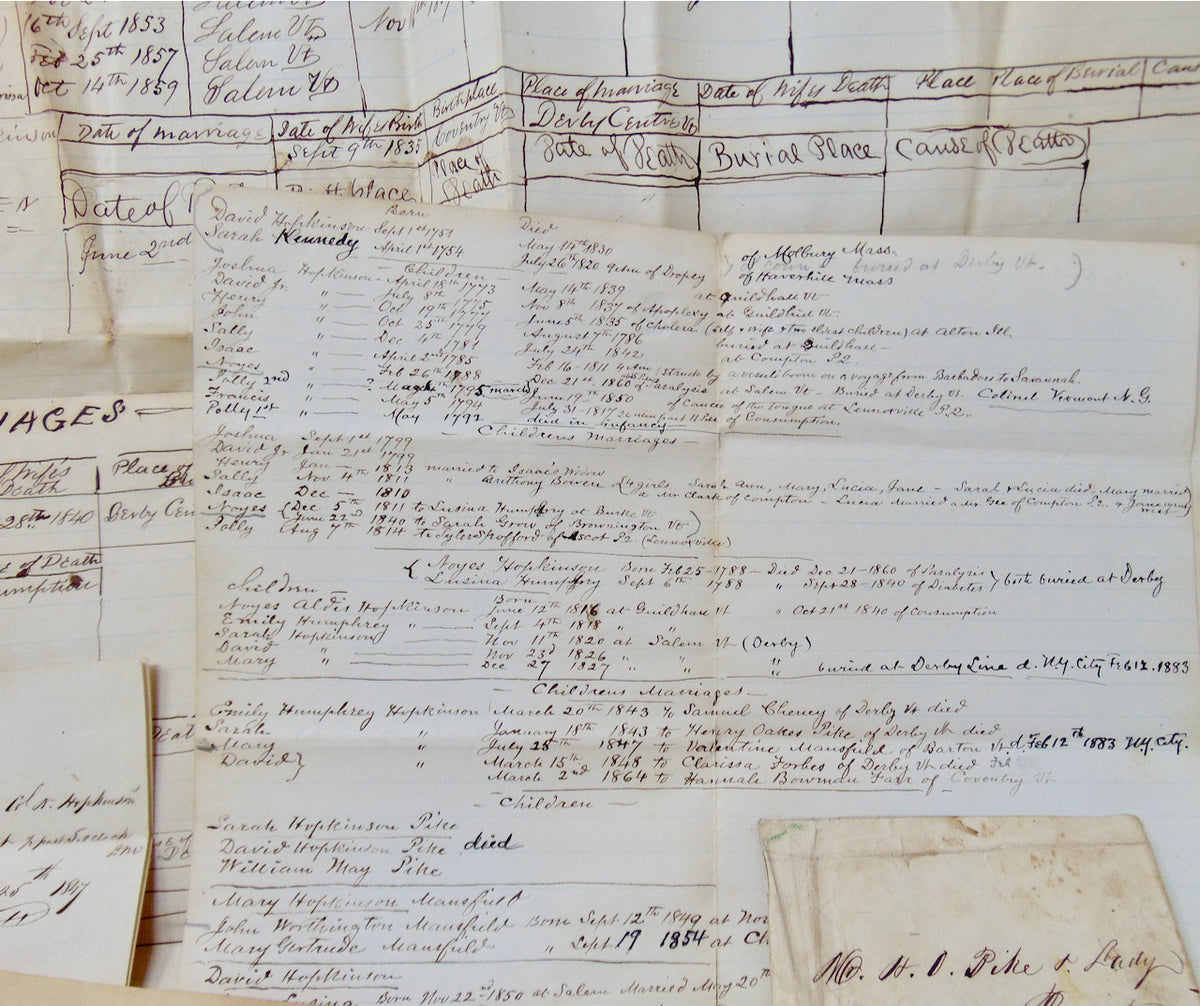 16th Sept 1853 Salem Vt
Feb 25th 1857 Salem Vt
Oct 14th 1859 Salem Vt
Date of marriage Date of Wife's Birth Birthplace Place of marriage Date of Wife's Death Place Place of Burial
Sept 9th 1835 Coventry Vt Derby Centre Vt
Date of Place of Death Date of Death Burial Place Cause of Death
June 2nd
Born Died
David Hopkinson Sept 1st 1751 May 14th 1830 of Mass.
Sarah Kennedy April 1st 1754 July 26th 1820 of Dropsy of Haverhill Mass
buried at Derby Vt.
Children
Joshua Hopkinson April 18th 1773 May 14th 1839 at Guildhall Vt
David Jr. " July 8th 1775 Nov 8th 1837 of Apoplexy at Guildhall Vt.
Henry " Oct 19th 1777 June 5th 1835 of Cholera (self & wife & two children) at Alton Ill.
John " Oct 25th 1779 August 7th 1786 buried at Guildhall
Sally " Dec 4th 1781 July 24th 1842 at Compton P.Q.
Isaac " April 2nd 1785 Feb 16-1811 struck by a vessel's boom on a voyage from Barbadoes to Savannah.
Noyes " Feb 26th 1788 Dec 21st 1860 of Paralysis at Salem Vt. Buried at Derby Vt. Colonel Vermont N.G.
Polly 2nd " ? 1795 March June 19th 1850 of Cancer of the tongue at Lennoxville P.Q.
Francis " May 5th 1794 July 31-1817 of Consumption.
Polly 1st " May 1792 died in infancy
Childrens Marriages
Joshua Sept 1st 1799
David Jr Jan 21st 1799
Henry Jan 1813 married to Isaac's Widow
Sally Nov 4th 1811 " Anthony Bowen (4 girls Sarah Ann, Mary, Lucia, Jane - Sarah & Lucia died, Mary married
Isaac Dec - 1810 a Mr Clark of Compton - Lucia married a Mr Gee of Compton P.Q. & Jane went west
Noyes (Dec 5th 1811 to Lusina Humphry at Burke Vt
(June 22d 1840 to Sarah Grow of Brownington Vt)
Polly Aug 7th 1814 to Tyler Spofford of Ascot P.Q. (Lennoxville)
Noyes Hopkinson Born Feb 25-1788 - Died Dec 21-1860 of Paralysis
Lusina Humphry Sept 6th 1788 " Sept 28-1840 of Diabetes } both buried at Derby
Children Born
Noyes Aldis Hopkinson June 12th 1816 at Guildhall Vt " Oct 21st 1840 of Consumption
Emily Humphrey " Sept 4th 1818 " "
Sarah Hopkinson Nov 11th 1820 at Salem Vt (Derby)
David " Nov 23d 1826
Mary " Dec 27 1827 " " " buried at Derby Line d. N.Y. City Feb 12. 1883
Childrens Marriages
Emily Humphrey Hopkinson March 20th 1843 to Samuel Cheney of Derby Vt died
Sarah " January 18th 1843 to Henry Oakes Pike of Derby Vt died
Mary " July 25th 1847 to Valentine Mansfield of Barton Vt. d. Feb 12th 1883 N.Y. City.
David} " March 15th 1848 to Clarissa Forbes of Derby Vt died
March 2nd 1864 to Hannah Bowman Farr of Coventry Vt
Children
Sarah Hopkinson Pike
David Hopkinson Pike died
William May Pike
Mary Hopkinson Mansfield
John Worthington Mansfield Born Sept 12th 1849 at
Mary Gertrude Mansfield " Sept 19 1854 at
David Hopkinson
Lusina Born Nov 22nd 1850 at Salem Married May 20th
AGES
Wife's Death Place of
28th 1840 Derby Cen
of Death
umption
N. Hopkinson
25th 1847
H. O. Pike & Lady